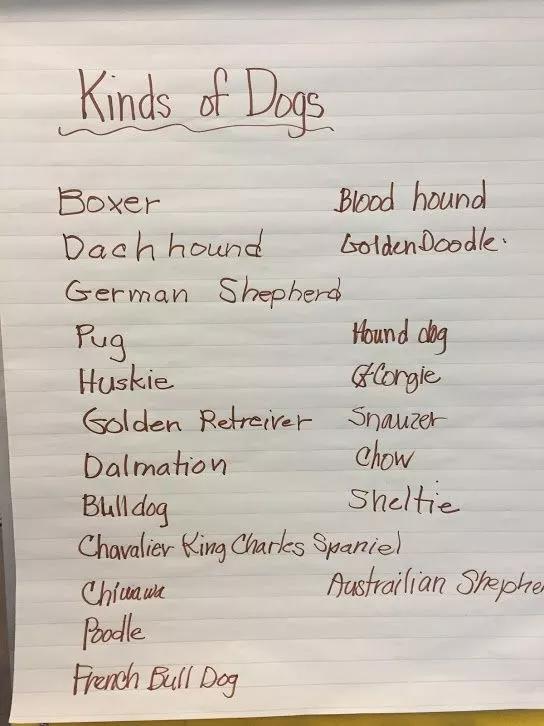 Kinds of Dogs
Boxer
Dach hound
German Shepherd
Pug
Huskie
Golden Retreiver
Dalmation
Bulldog
Chavalier King Charles Spaniel
Chiwawa
Poodle
French Bull Dog
Blood hound
GoldenDoodle.
Hound dog
Corgie
Snauzer
Chow
Sheltie
Austrailian Shephe